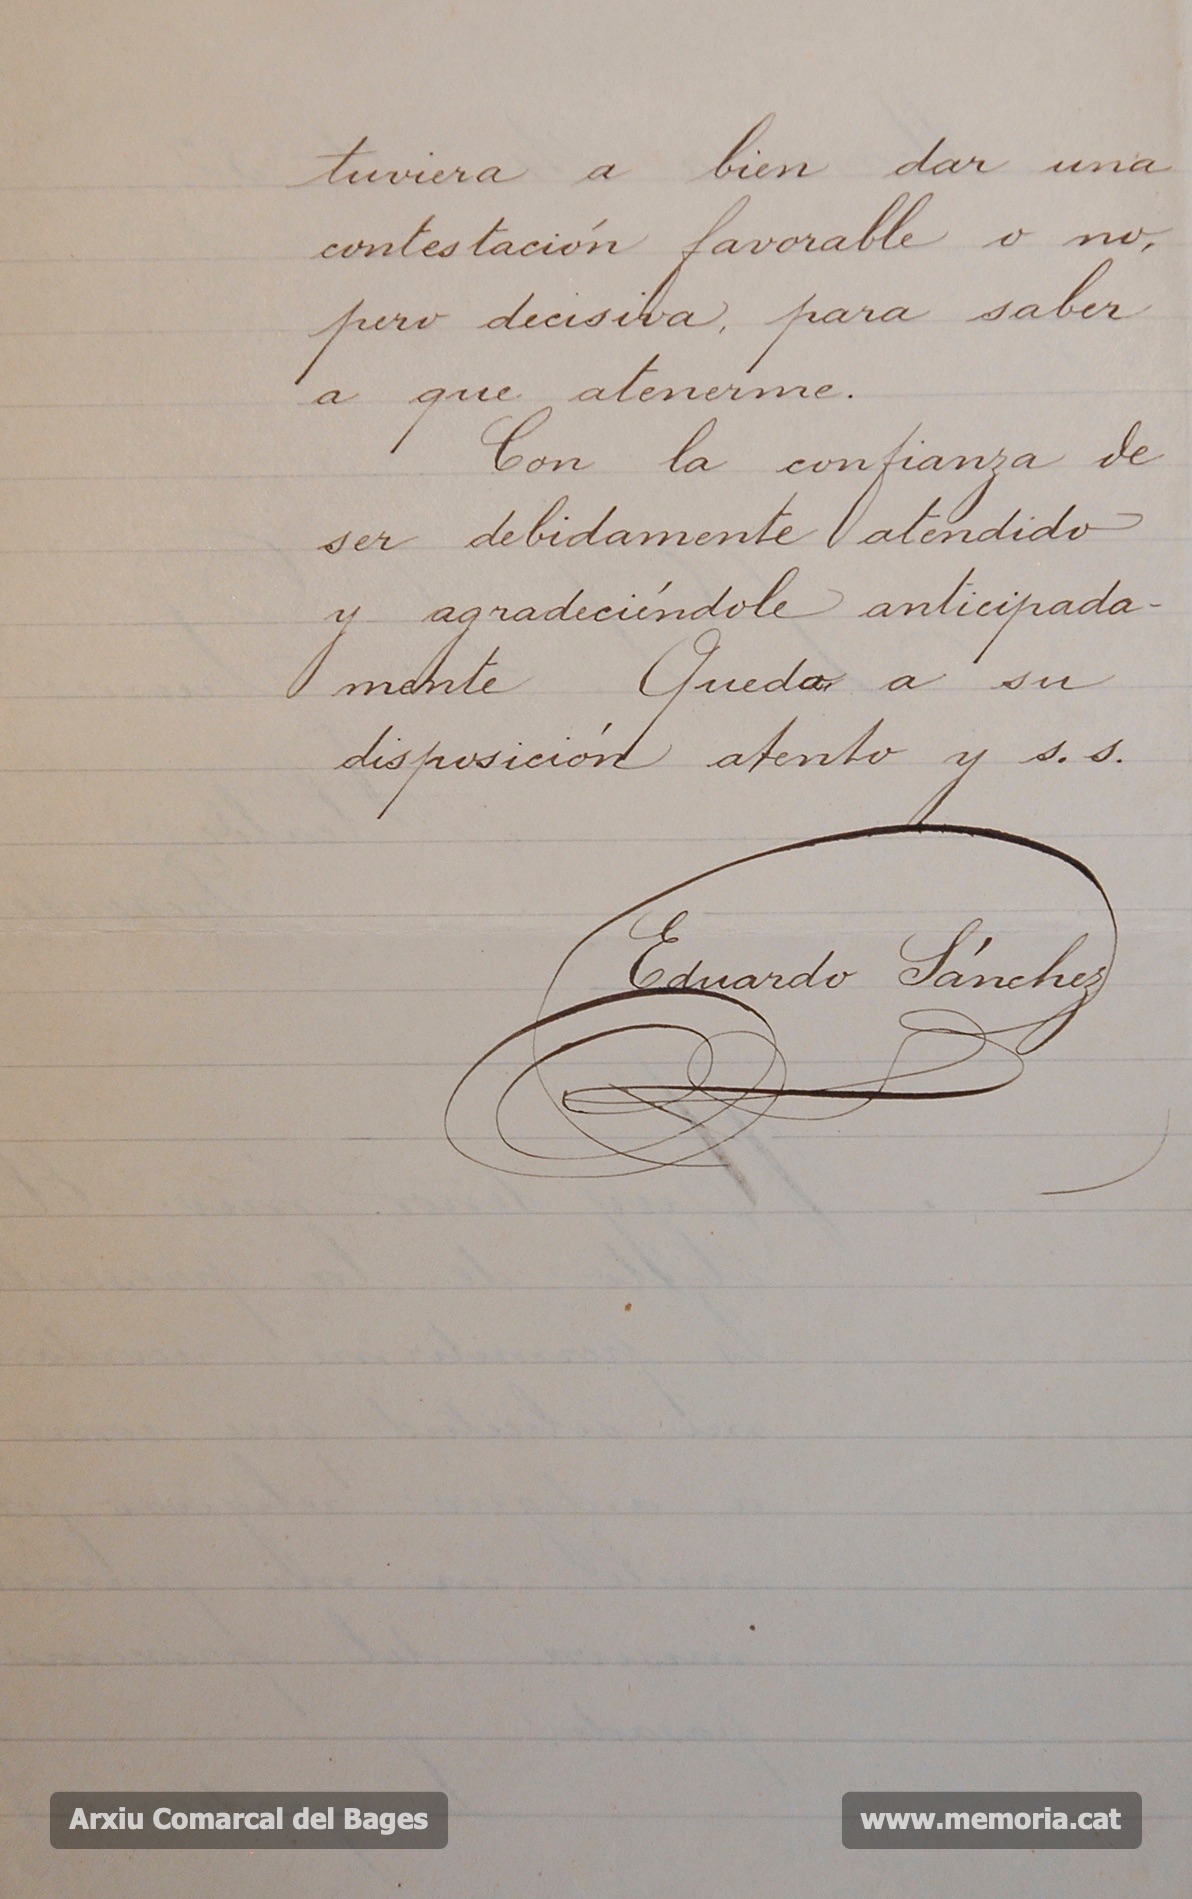 tuviera a bien dar una
contestación favorable o no,
pero decisiva, para saber
a que atenerme.
Con la confianza de
ser debidamente atendido
y agradeciéndole anticipada-
mente Queda a su
disposición atento y s. s.
Eduardo Sánchez
Arxiu Comarcal del Bages
www.memoria.cat